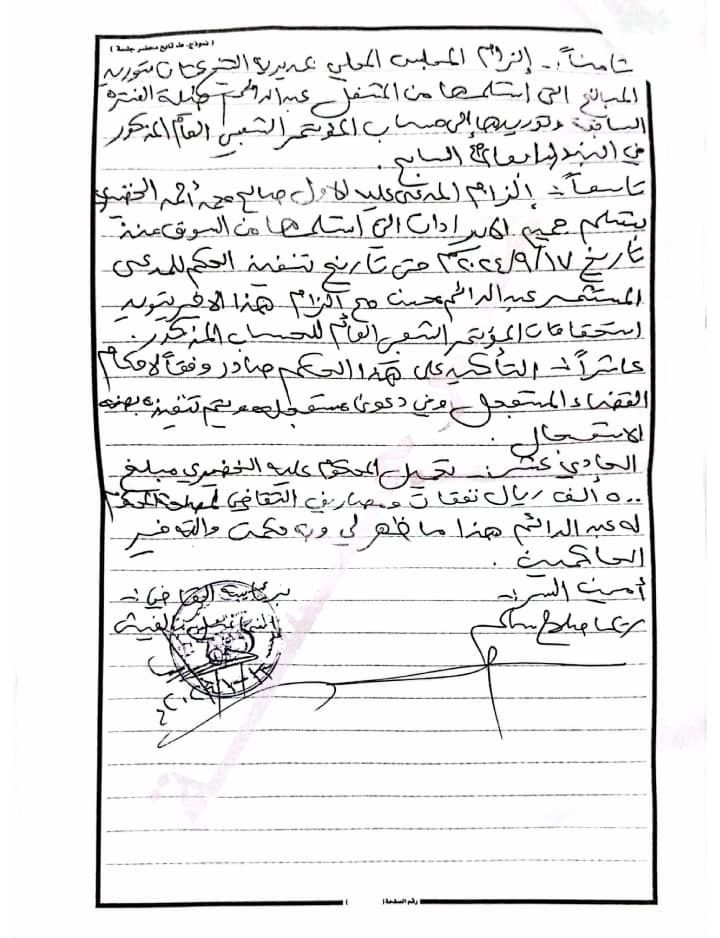 ( نموذج. مد تابع محضر جلسة )
ثامناً :. إلزام المجلس المحلي بمديرية بتوريد
المبالغ التي استلمها من المشغل عبدالدائم طيلة الفترة
السابقة وتوريدها إلى حساب المؤتمر الشعبي العام المذكور
في البند السابع .
تاسعاً :. إلزام المدعى عليه الأول صالح محمد أحمد الخضيري
بتسليم جميع الإيرادات التي استلمها من السوق منذ
تاريخ ٢٠٢٤/٩/١٧م حتى تاريخ تنفيذ الحكم للمدعي
المستثمر عبدالدائم محسن مع الزام هذا الأخير بتوريد
استحقاقات المؤتمر الشعبي العام للحساب المذكور .
عاشراً :. التأكيد على هذا الحكم صادر وفقاً لأحكام
القضاء المستعجل وفي دعوى مستعجلة ويتم تنفيذه بصفة
الاستعجال .
الحادي عشر :. تحميل المحكوم عليه الخضيري مبلغ
٥٠٠ ألف ريال نفقات ومصاريف التقاضي لصالح المحكوم
له عبدالدائم هذا ما ظهر لي وبه حكمت والله خير
الحاكمين .
أمين السر :.
القاضي :.
رقم الصفحة ( )